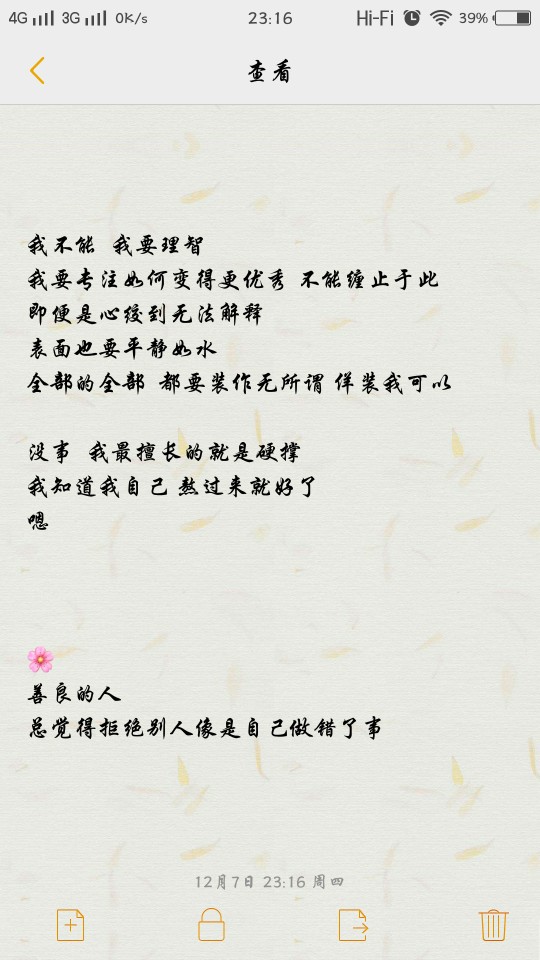 4G 3G 0K/s 23:16 Hi-Fi 39%
查看
我不能 我要理智
我要专注如何变得更优秀 不能缠止于此
即便是心绞到无法解释
表面也要平静如水
全部的全部 都要装作无所谓 佯装我可以
没事 我最擅长的就是硬撑
我知道我自己 熬过来就好了
嗯
🌸
善良的人
总觉得拒绝别人像是自己做错了事
12月7日 23:16 周四